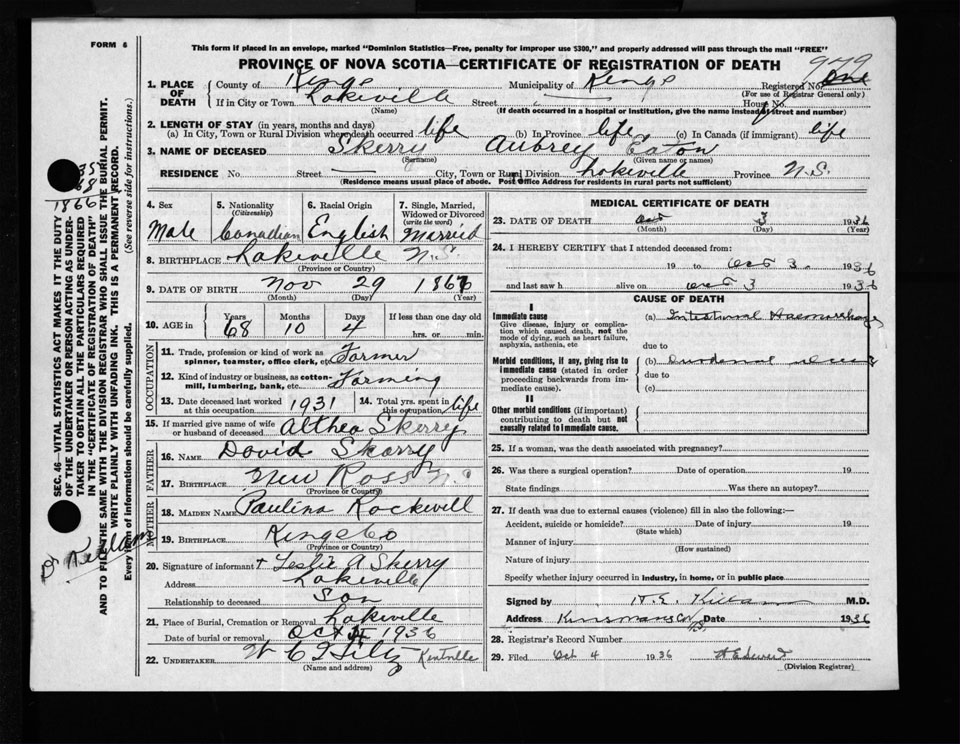 FORM 6
This form if placed in an envelope, marked "Dominion Statistics—Free, penalty for improper use $300," and properly addressed will pass through the mail "FREE"
PROVINCE OF NOVA SCOTIA—CERTIFICATE OF REGISTRATION OF DEATH
979
1. PLACE OF DEATH
County of Kings Municipality of Kings Registered No. One
(For use of Registrar General only)
If in City or Town Lakeville Street — House No.
(Name) (If death occurred in a hospital or institution, give the name instead of street and number)
2. LENGTH OF STAY (in years, months and days)
(a) In City, Town or Rural Division where death occurred life (b) In Province life (c) In Canada (if immigrant) life
3. NAME OF DECEASED Skerry Aubrey Eaton
(Surname) (Given name or names)
RESIDENCE No. Street — City, Town or Rural Division Lakeville Province N.S.
(Residence means usual place of abode. Post Office Address for residents in rural parts not sufficient)
4. Sex Male
5. Nationality (Citizenship) Canadian
6. Racial Origin English
7. Single, Married, Widowed or Divorced (write the word) Married
8. BIRTHPLACE Lakeville N.S.
(Province or Country)
9. DATE OF BIRTH Nov 29 1867
(Month) (Day) (Year)
10. AGE in Years Months Days If less than one day old
68 10 4 hrs. or min.
OCCUPATION
11. Trade, profession or kind of work as spinner, teamster, office clerk, etc. Farmer
12. Kind of industry or business, as cotton-mill, lumbering, bank, etc. Farming
13. Date deceased last worked at this occupation 1931 14. Total yrs. spent in this occupation life
15. If married give name of wife or husband of deceased Althea Skerry
FATHER
16. NAME David Skerry
17. BIRTHPLACE New Ross N.S.
(Province or Country)
MOTHER
18. MAIDEN NAME Paulina Rockwill
19. BIRTHPLACE Kings Co
(Province or Country)
20. Signature of informant + Leslie A Skerry
Address Lakeville
Relationship to deceased Son
21. Place of Burial, Cremation or Removal Lakeville
Date of burial or removal Oct 1936
22. UNDERTAKER Kentville
(Name and address)
MEDICAL CERTIFICATE OF DEATH
23. DATE OF DEATH Oct 3 1936
(Month) (Day) (Year)
24. I HEREBY CERTIFY that I attended deceased from:
19 to Oct 3. 1936
and last saw h alive on Oct 3 1936
CAUSE OF DEATH
I
Immediate cause
Give disease, injury or complication which caused death, not the mode of dying, such as heart failure, asphyxia, asthenia, etc
(a) Intestinal Haemorrhage
due to
Morbid conditions, if any, giving rise to immediate cause (stated in order proceeding backwards from immediate cause).
(b) Duodenal ulcer
due to
(c)
II
Other morbid conditions (if important) contributing to death but not causally related to immediate cause.
25. If a woman, was the death associated with pregnancy?
26. Was there a surgical operation? Date of operation 19
State findings Was there an autopsy?
27. If death was due to external causes (violence) fill in also the following:—
Accident, suicide or homicide? Date of injury 19
(State which)
Manner of injury
(How sustained)
Nature of injury
Specify whether injury occurred in industry, in home, or in public place
Signed by H.E. Killam M.D.
Address Date 1936
28. Registrar's Record Number
29. Filed Oct 4 1936
(Division Registrar)
SEC. 46—VITAL STATISTICS ACT MAKES IT THE DUTY
OF THE UNDERTAKER OR PERSON ACTING AS UNDER-
TAKER TO OBTAIN ALL THE PARTICULARS REQUIRED
IN THE "CERTIFICATE OF REGISTRATION OF DEATH"
AND TO FILE THE SAME WITH THE DIVISION REGISTRAR WHO SHALL ISSUE THE BURIAL PERMIT.
WRITE PLAINLY WITH UNFADING INK. THIS IS A PERMANENT RECORD.
Every item of information should be carefully supplied. (See reverse side for instructions.)
68
1866
Dr Killam